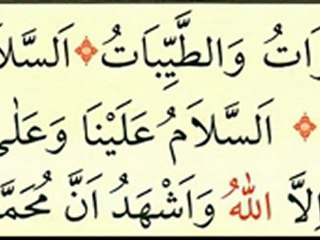 رَاتُ وَالطَّيِّبَاتُ اَلسَّلَا
اَلسَّلَامُ عَلَيْنَا وَعَلٰى
اِلَّا اللهُ وَاَشْهَدُ اَنَّ مُحَمَّ